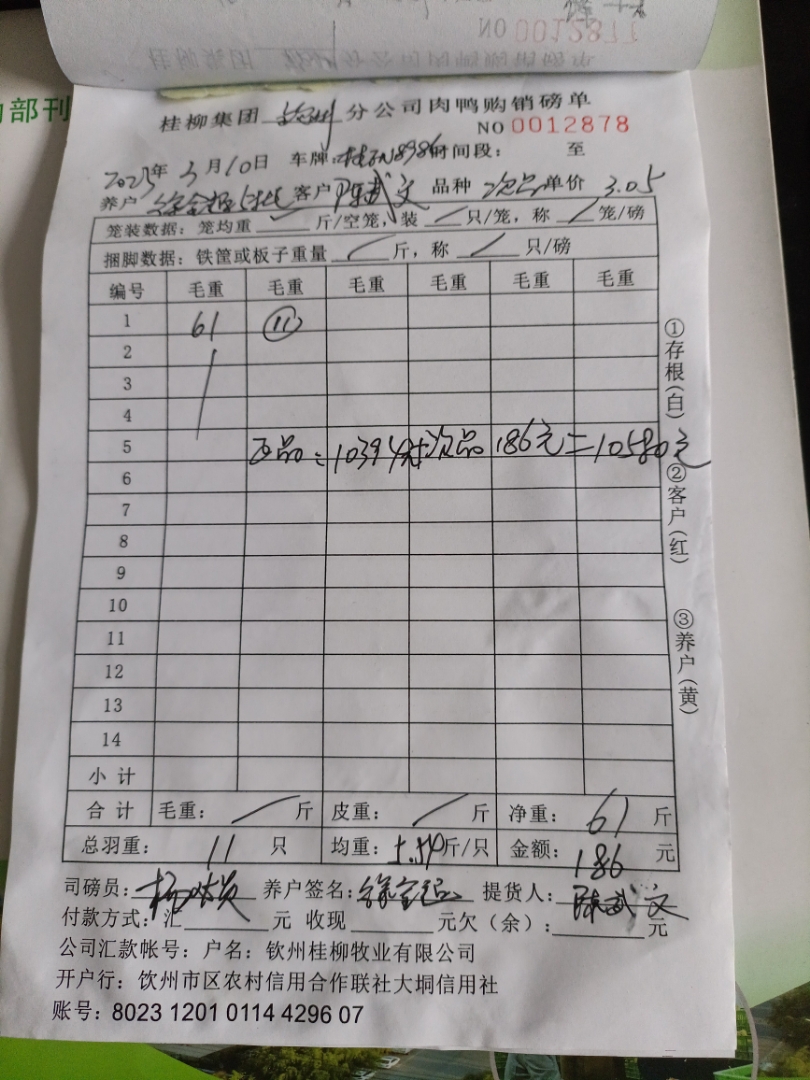 NO 0012877
内部刊
桂柳集团 钦州 分公司肉鸭购销磅单
NO 0012878
2025年 3月10日 车牌: 时间段: 至
养户 客户 陈武文 品种 次品 单价 3.05
笼装数据: 笼均重 / 斤/空笼, 装 / 只/笼, 称 / 笼/磅
捆脚数据: 铁筐或板子重量 / 斤, 称 / 只/磅
编号 毛重 毛重 毛重 毛重 毛重 毛重
1 61 ⑪
2
3
4
5 正品: 10394 + 次品 186元 = 10580元
6
7
8
9
10
11
12
13
14
小计
合计 毛重: / 斤 皮重: / 斤 净重: 61 斤
总羽重: 11 只 均重: 5.54斤/只 金额: 186 元
司磅员: 养户签名: 提货人: 陈武文
付款方式: 汇 元 收现 元欠(余): 元
公司汇款帐号: 户名: 钦州桂柳牧业有限公司
开户行: 钦州市区农村信用合作联社大垌信用社
账号: 8023 1201 0114 4296 07
①存根(白)
②客户(红)
③养户(黄)